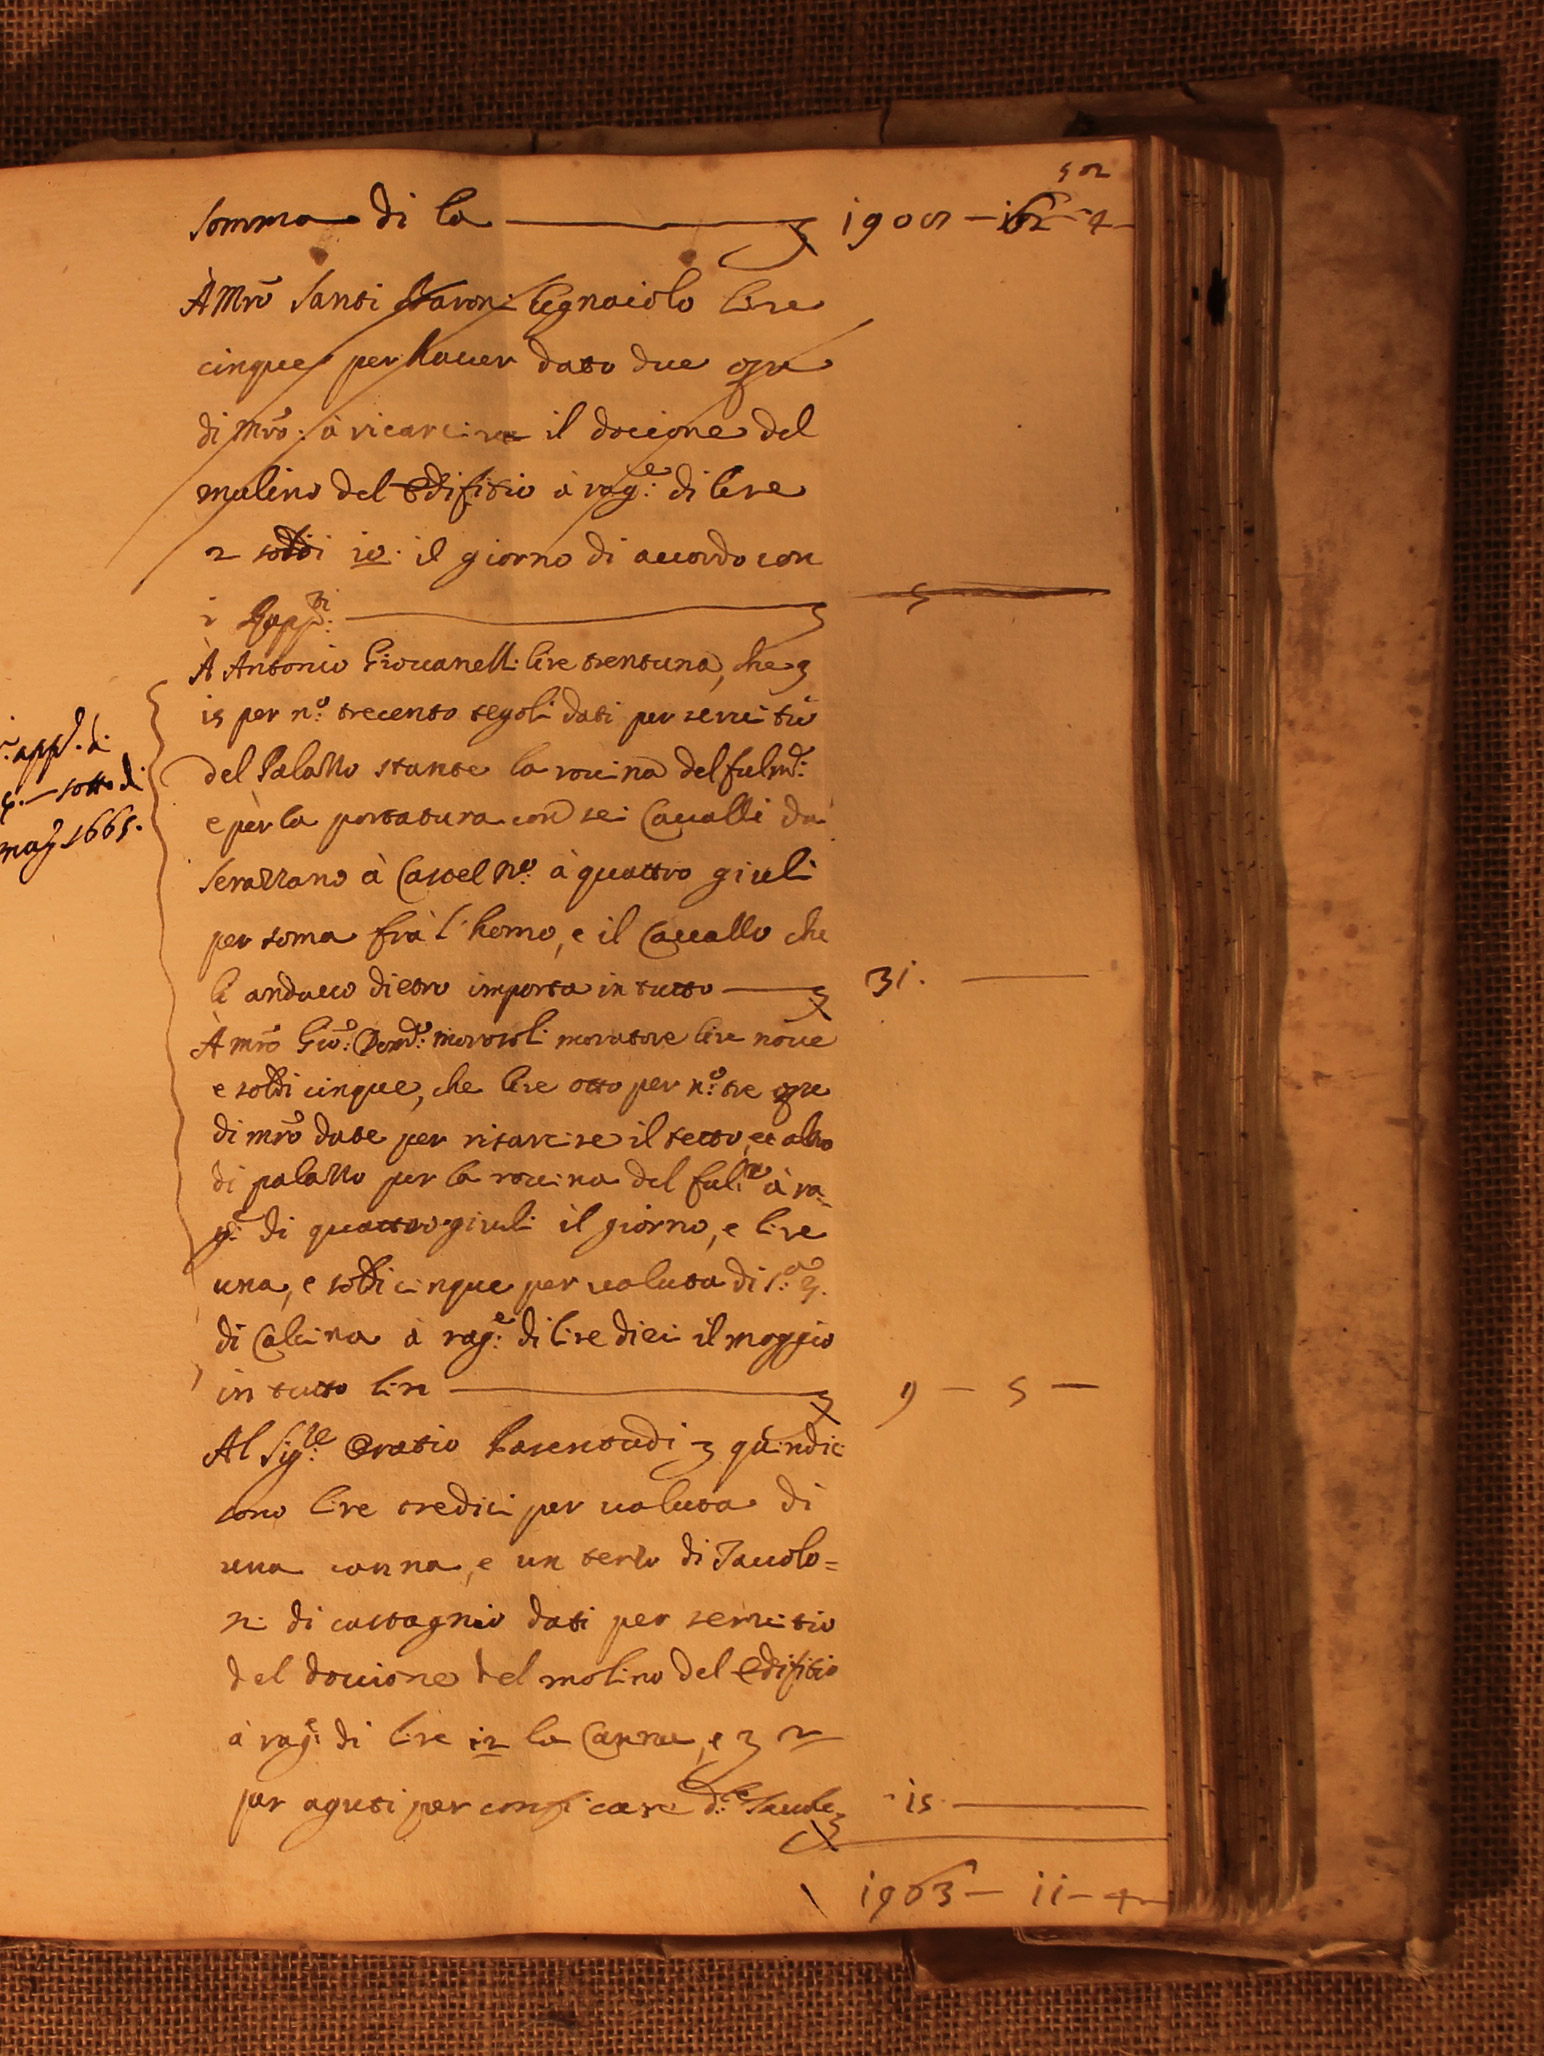 502
Somma di la 1908 — — 4
À Mrõ Santi legnaiolo lire
cinque per hauer dato due opre
di Mrõ: à risarcire il doccione del
mulino del Edifitio à rag:e di lire
2 soldi 10: il giorno di accordo con
i Rapp:ti 5
À Antonio Giouanelli lire trentuna, che
15 per n:o trecento tegoli dati per seruitio
del Palazzo stante la rouina del fulm:
e per la portatura con sei Caualli da
Serazzano à Castel N:o à quattro giuli
per soma frà l'homo, e il Cauallo che
li andaua dietro importa in tutto 31.
app:
sotto di
mag: 1665.
À mrõ Gio: Dom:o moratore lire noue
e soldi cinque, che lire otto per n:o tre opre
di mrõ date per risarcire il tetto, et altro
di palazzo per la rouina del ful:e à ra-
g:e di quattro giuli il giorno, e lire
una, e soldi cinque per ualuta di
di Calcina à rag:e di lire dieci il moggio
in tutto lire 9 — 5 —
Al Sig:re Oratio quindici
sono lire tredici per ualuta di
una canna, e un terzo di Tauolo=
ni di castagnio dati per seruitio
del doccione del molino del Edifitio
à rag:e di lire 12 la Canna, e 2
per aguti per conficare d:e Tauole 15
1963 — 11 — 4